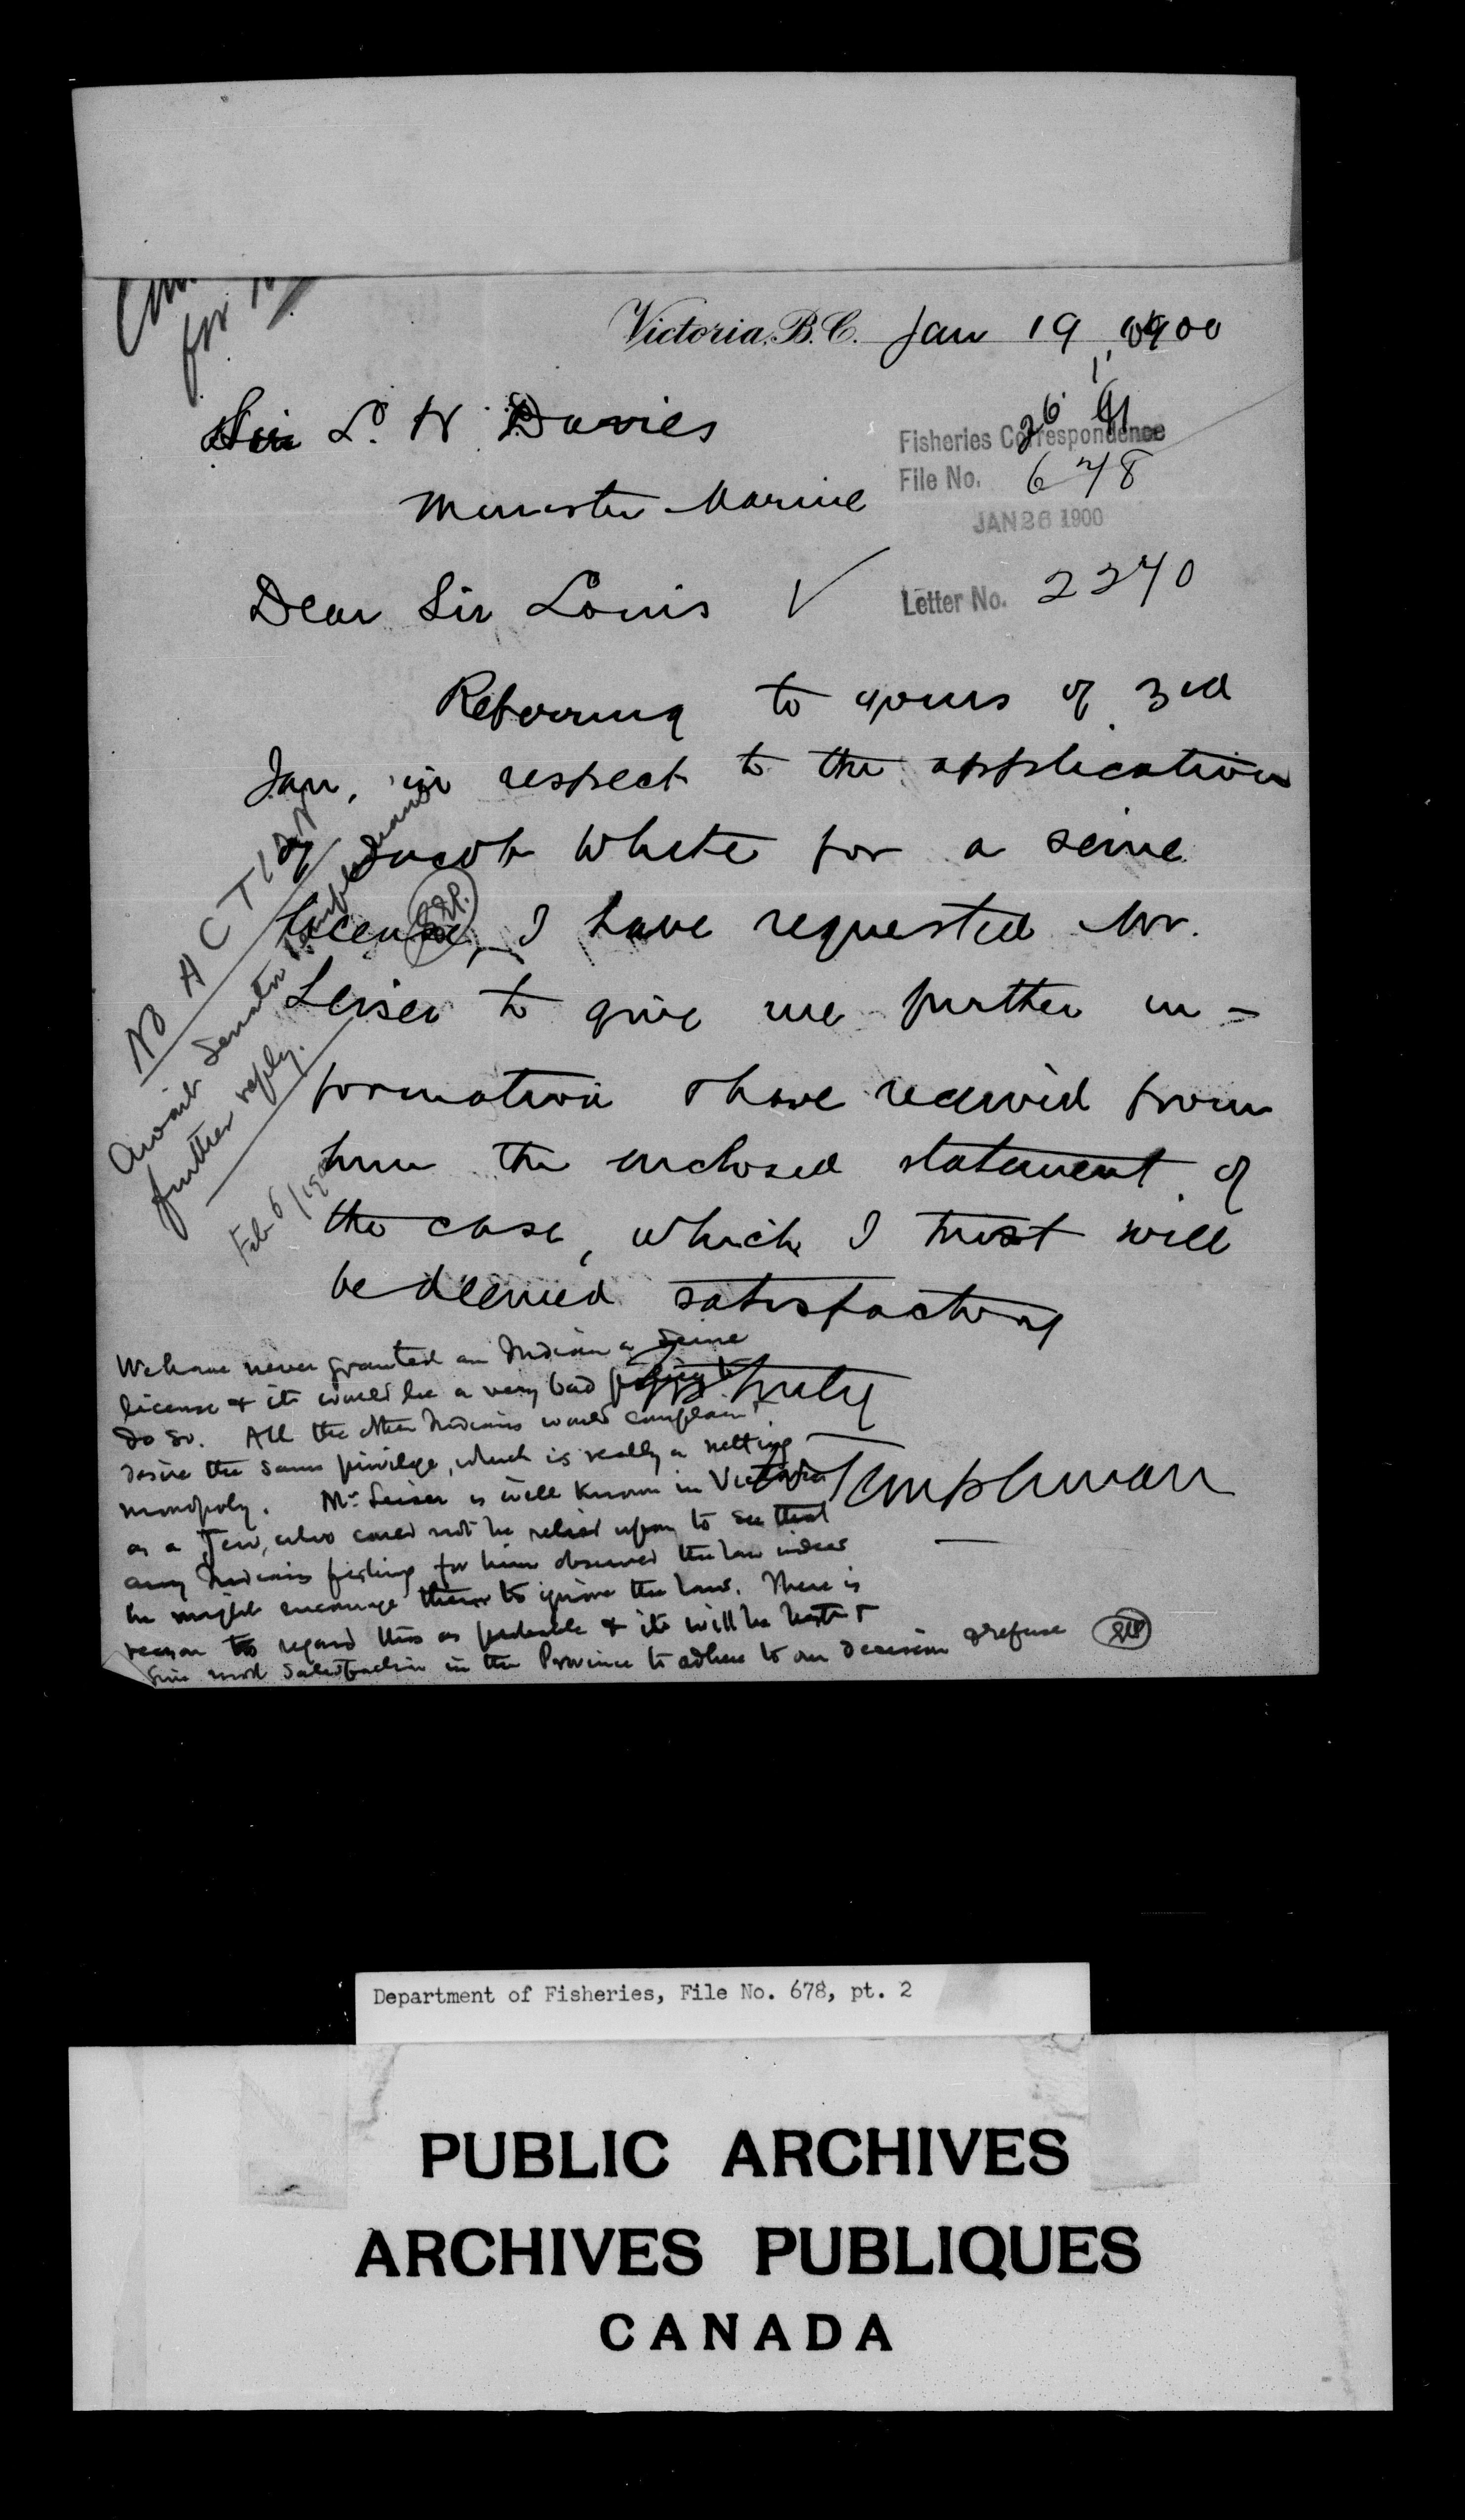 for
Victoria, B.C. Jan 19, 1900
Sir L. H. Davies
Fisheries Correspondence
Minister Marine
File No. 678
JAN 26 1900
Dear Sir Louis
Letter No. 2270
Referring to yours of 3rd
Jan, in respect to the application
of Jacob White for a seine
license, I have requested Mr.
Leiser to give me further in-
formation I have received from
him the enclosed statement of
the case, which I trust will
be deemed satisfactory
Yrs truly
Templeman
NO ACTION
Await Senator Templeman's
further reply.
Feb 6/1900
We have never granted an Indian a seine
license & it would be a very bad policy to
do so. All the other Indians would complain &
desire the same privilege, which is really a netting
monopoly. Mr Leiser is well known in Victoria
as a Jew, who could not be relied upon to see that
any Indians fishing for him observed the law indeed
he might encourage them to ignore the law. There is
reason to regard this as probable & it will be best &
give most satisfaction in the Province to adhere to our decision & refuse
Department of Fisheries, File No. 678, pt. 2
PUBLIC ARCHIVES
ARCHIVES PUBLIQUES
CANADA